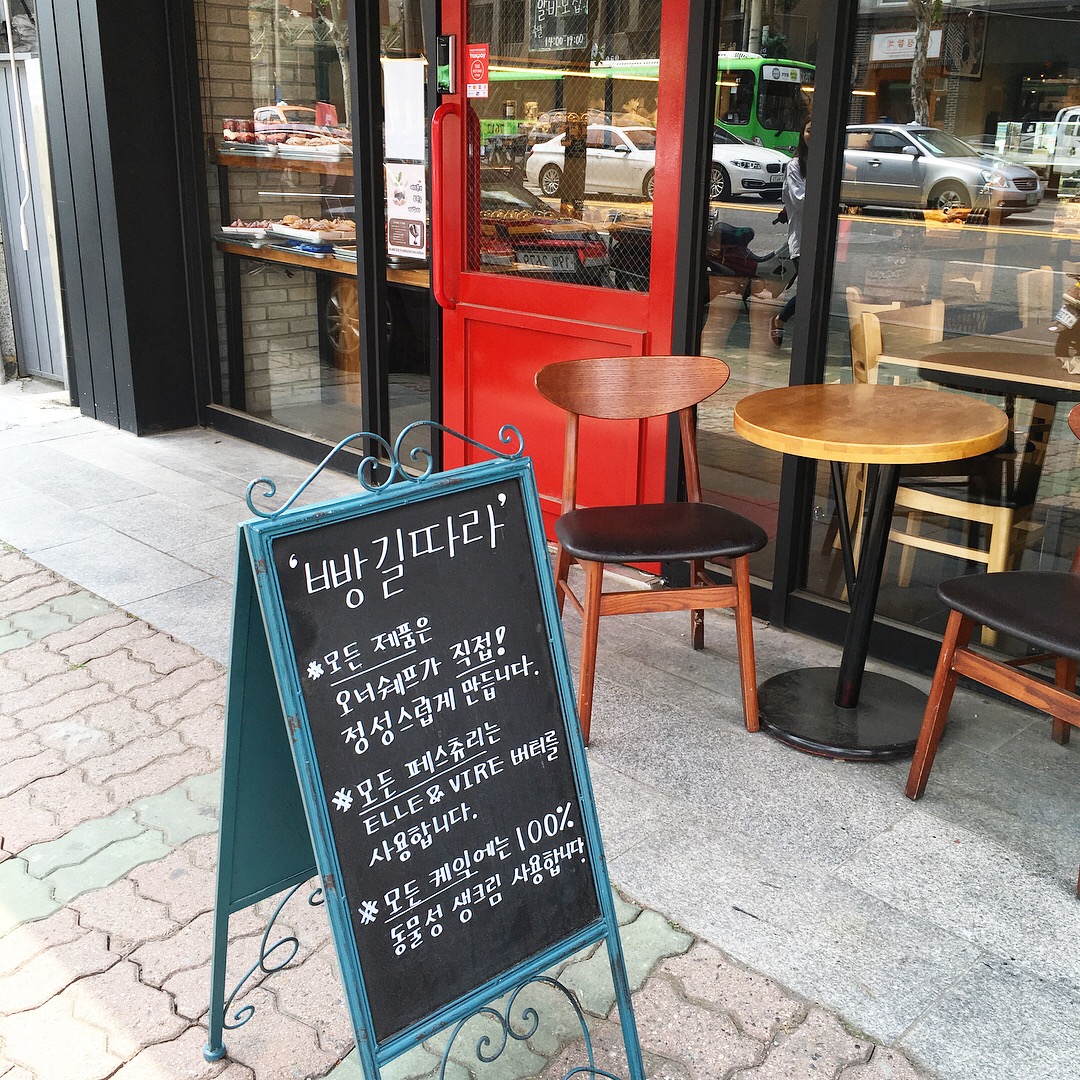 알바모집
14:00-19:00
'빵길따라'
※모든 제품은
오너쉐프가 직접!
정성스럽게 만듭니다.
※모든 페스츄리는
ELLE & VIRE 버터를
사용합니다.
※모든 케익에는 100%
동물성 생크림 사용합니다.